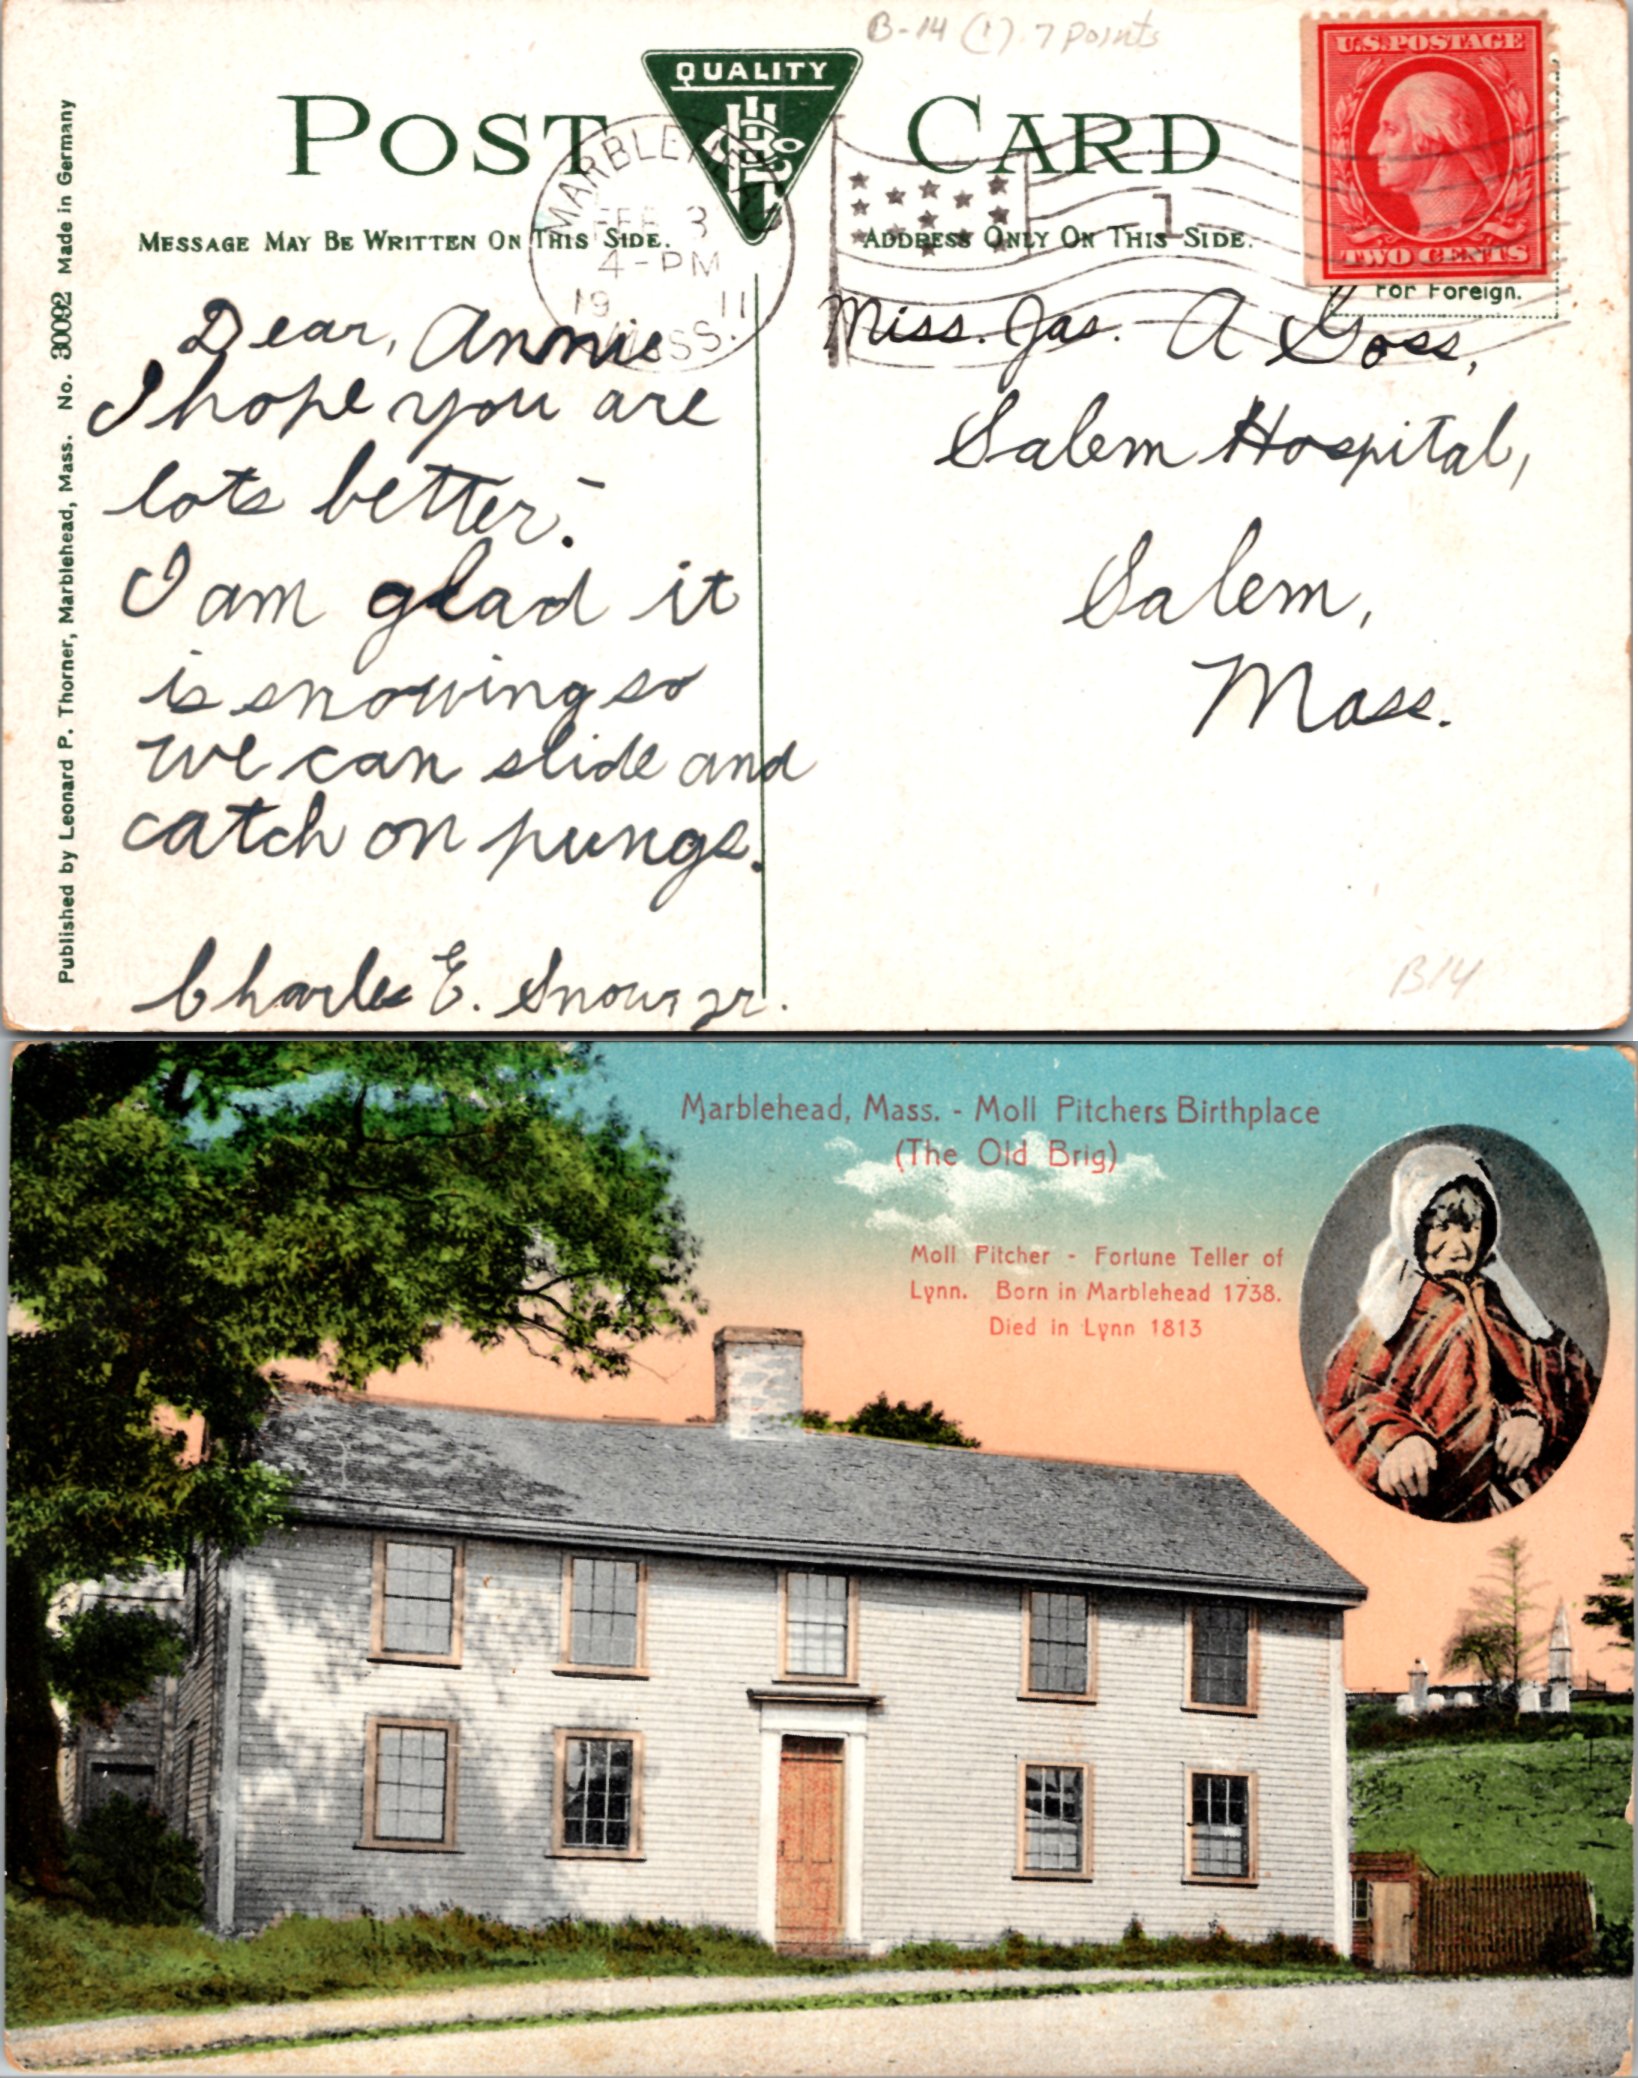 B-14 (1) 7 points
U.S. POSTAGE
TWO CENTS
QUALITY
POST CARD
MARBLEHEAD
FEB 3
4-PM
19 11
MASS.
1
MESSAGE MAY BE WRITTEN ON THIS SIDE.
ADDRESS ONLY ON THIS SIDE.
For Foreign.
Published by Leonard P. Thorner, Marblehead, Mass. No. 30092 Made in Germany
Dear, Annie
I hope you are
lots better.-
I am glad it
is snowing so
we can slide and
catch on pungs.
Charles E. Snow, jr.
Miss. Jas. A Goss,
Salem Hospital,
Salem,
Mass.
B14
Marblehead, Mass. - Moll Pitchers Birthplace
(The Old Brig)
Moll Pitcher - Fortune Teller of
Lynn. Born in Marblehead 1738.
Died in Lynn 1813